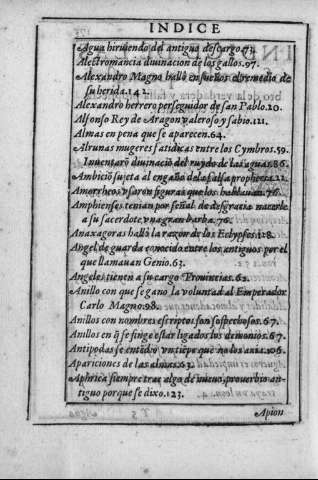 INDICE
Agua hiruiendo del antiguo descargo.71.
Alectromancia diuinacion de los gallos.97.
Alexandro Magno hallò en sueños el remedio de
su herida.142.
Alexandro herrero perseguidor de san Pablo.20.
Alfonso Rey de Aragon valeroso y sabio.121.
Almas en pena que se aparecen.64.
Alrunas mugeres fatidicas entre los Cymbros.59.
Inuentarõ diuinaciõ del ruydo de las aguas.86.
Ambiciõ sujeta al engaño de la falsa prophecia.22.
Amorrheos vsaron figuras que los hablauan.76.
Amphienses tenian por señal de desgracia nacerle
a su sacerdote vna gran barba.76.
Anaxagoras hallò la razon de los Eclypses.128.
Angel de guarda conocido entre los antiguos por el
que llamauan Genio.63.
Angeles tienen a su cargo Prouincias.63.
Anillo con que se gano la voluntad al Emperador
Carlo Magno.98.
Anillos con nombres escriptos son sospechosos.67.
Anillos en q̃ se finge estar ligados los demonios.67.
Antipodas se entẽdio vn tiẽpo que no los auia.106.
Apariciones de las almas.63.
Aphrica siempre trae algo de nueuo, prouerbio an-
tiguo porque se dixo.123.
Apion